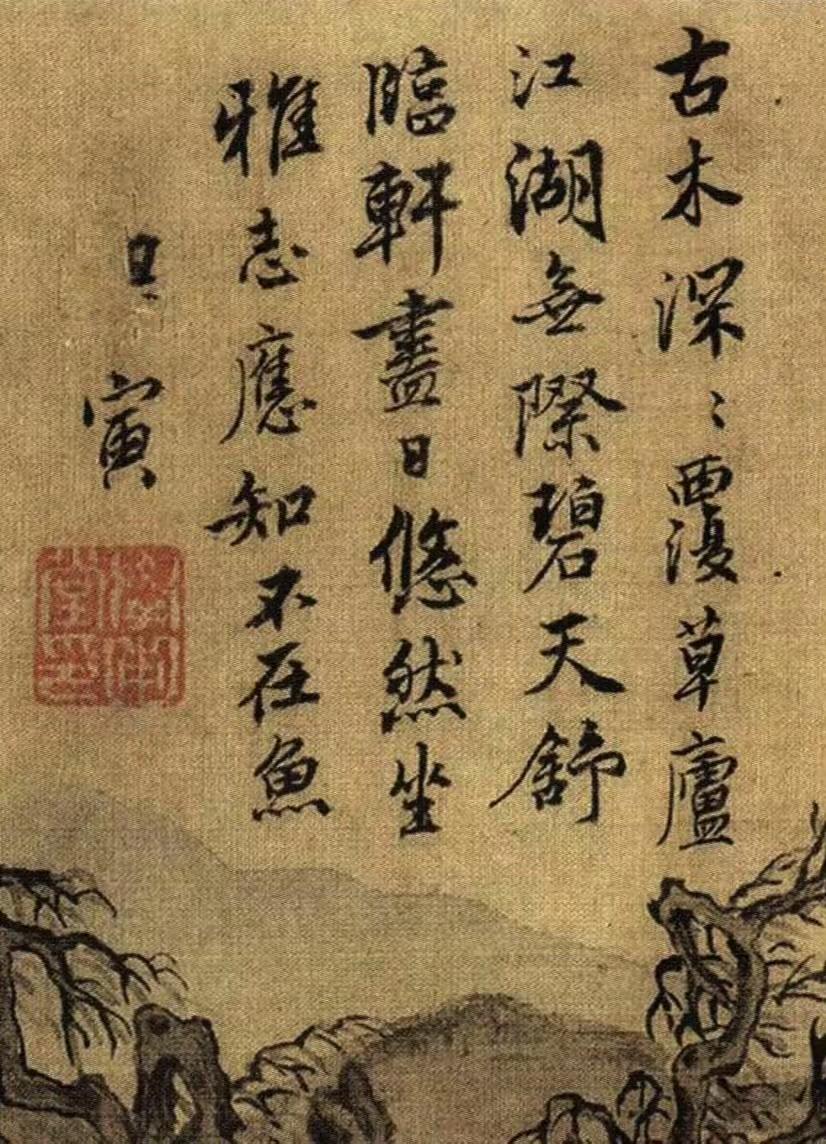 古木深〻覆草廬
江湖無際碧天舒
臨軒盡日悠然坐
雅志應知不在魚
寅